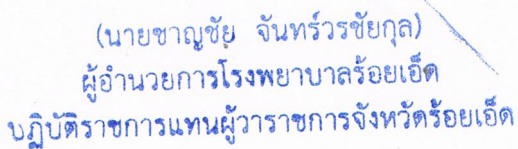 (นายชาญชัย จันทร์วรชัยกุล)
ผู้อำนวยการโรงพยาบาลร้อยเอ็ด
ปฏิบัติราชการแทนผู้วาราชการจังหวัดร้อยเอ็ด